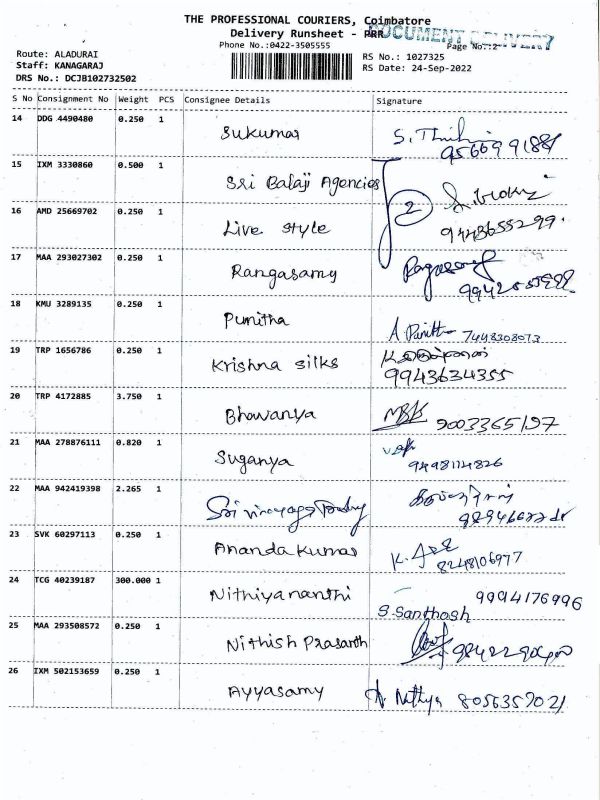 THE PROFESSIONAL COURIERS, Coimbatore
Delivery Runsheet - PRR
DOCUMENT DELIVERY
Phone No.:0422-3505555 Page No.:2
Route: ALADURAI RS No.: 1027325
Staff: KANAGARAJ RS Date: 24-Sep-2022
DRS No.: DCJB102732502
S No Consignment No Weight PCS Consignee Details Signature
14 DDG 4490480 0.250 1 Sukumar
15 IXM 3330860 0.500 1 Sri Balaji Agencies 2
16 AMD 25669702 0.250 1 Live style
17 MAA 293027302 0.250 1 Rangasamy
18 KMU 3289135 0.250 1 Punitha 7448308073
19 TRP 1656786 0.250 1 Krishna silks 9943634355
20 TRP 4172885 3.750 1 Bhavanya 9003365197
21 MAA 278876111 0.820 1 Suganya 9498114826
22 MAA 942419398 2.265 1 Sri Vinayaga
23 SVK 60297113 0.250 1 Ananda Kumar 8248106977
24 TCG 40239187 300.000 1 Nithiyananthi S.Santhosh 9994176996
25 MAA 293508572 0.250 1 Nithish Prasanth
26 IXM 502153659 0.250 1 Ayyasamy A. Nathiya 8056357021